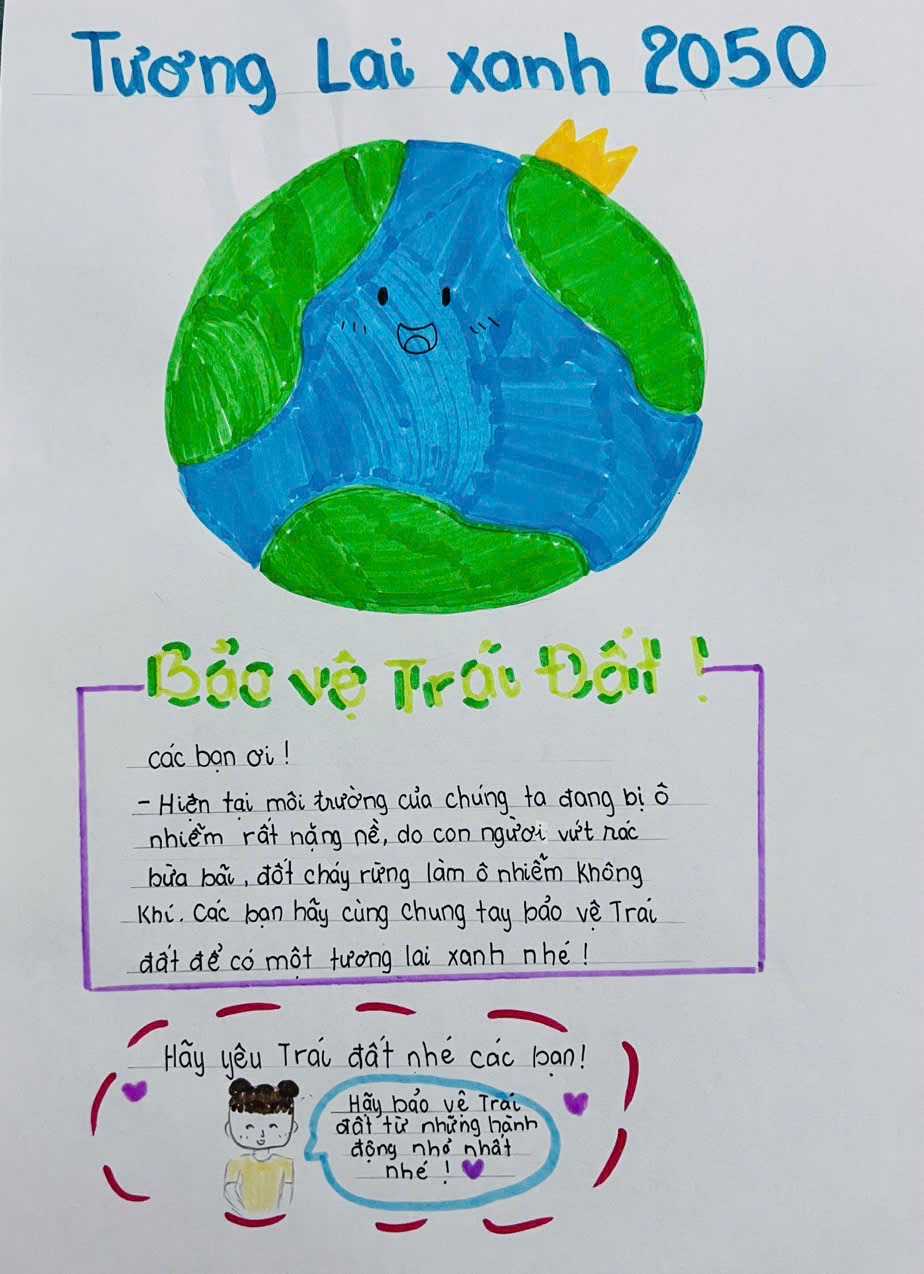 Tương Lai xanh 2050
Bảo vệ Trái Đất !
các bạn ơi !
- Hiện tại môi trường của chúng ta đang bị ô
nhiễm rất nặng nề, do con người vứt rác
bừa bãi, đốt cháy rừng làm ô nhiễm không
khí. Các bạn hãy cùng chung tay bảo vệ Trái
đất để có một tương lai xanh nhé !
Hãy yêu Trái đất nhé các bạn!
Hãy bảo vệ Trái
đất từ những hành
động nhỏ nhất
nhé !